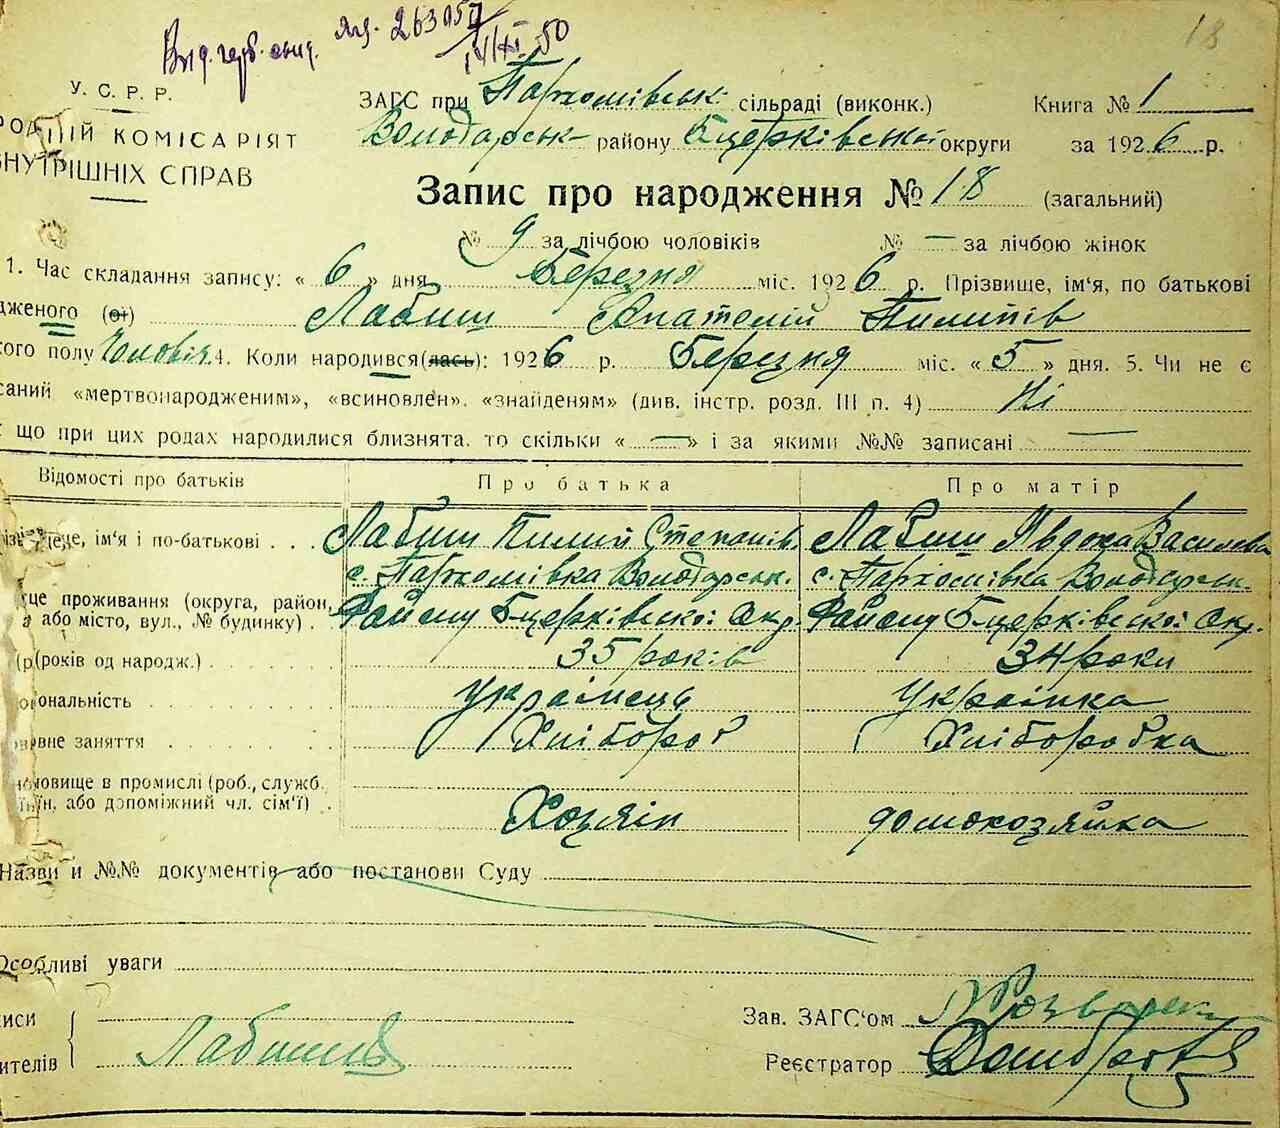 Вид. герб. свид. ЯЦ. 263957
14/XI 50
18
У. С. Р. Р.
ЗАГС при Пархомівськ сільраді (виконк.) Книга № 1
НІЙ КОМІСАРІЯТ
Володарськ району Бцерківської округи за 1926 р.
НУТРІШНІХ СПРАВ
Запис про народження № 18 (загальний)
№ 9 за лічбою чоловіків № — за лічбою жінок
1. Час складання запису: « 6 » дня Березня міс. 1926 р. Прізвище, ім'я, по батькові
дженого (ої) Лабиш Анатолій Пилипів
кого полу Чоловіч. 4. Коли народився(лась): 1926 р. Березня міс. « 5 » дня. 5. Чи не є
саний «мертвонародженим», «всиновлен». «знайденям» (див. інстр. розд. III п. 4) Ні
що при цих родах народилися близнята, то скільки « — » і за якими №№ записані —
Відомості про батьків Про батька Про матір
ім'я і по-батькові . . . Лабиш Пилип Степанів. Лабиш Явдоха Василева
с. Пархомівка Володарськ. с. Пархомівка Володарськ.
це проживання (округа, район, Району Бцерківскої Окр. Району Бцерківскої Окр.
або місто, вул., № будинку) .
(років од народж.) . . . . . . . 35 років 34 роки
ональність . . . . . . . . . . Українець Українка
вне заняття . . . . . . . . . Хлібороб Хлібородка
новище в промислі (роб., служб.,
їн, або допоміжний чл. сім'ї) . Хозяїн домохозяйка
Назви и №№ документів або постанови Суду
Особливі уваги
иси Зав. ЗАГС'ом
ителів Лабиш Реєстратор